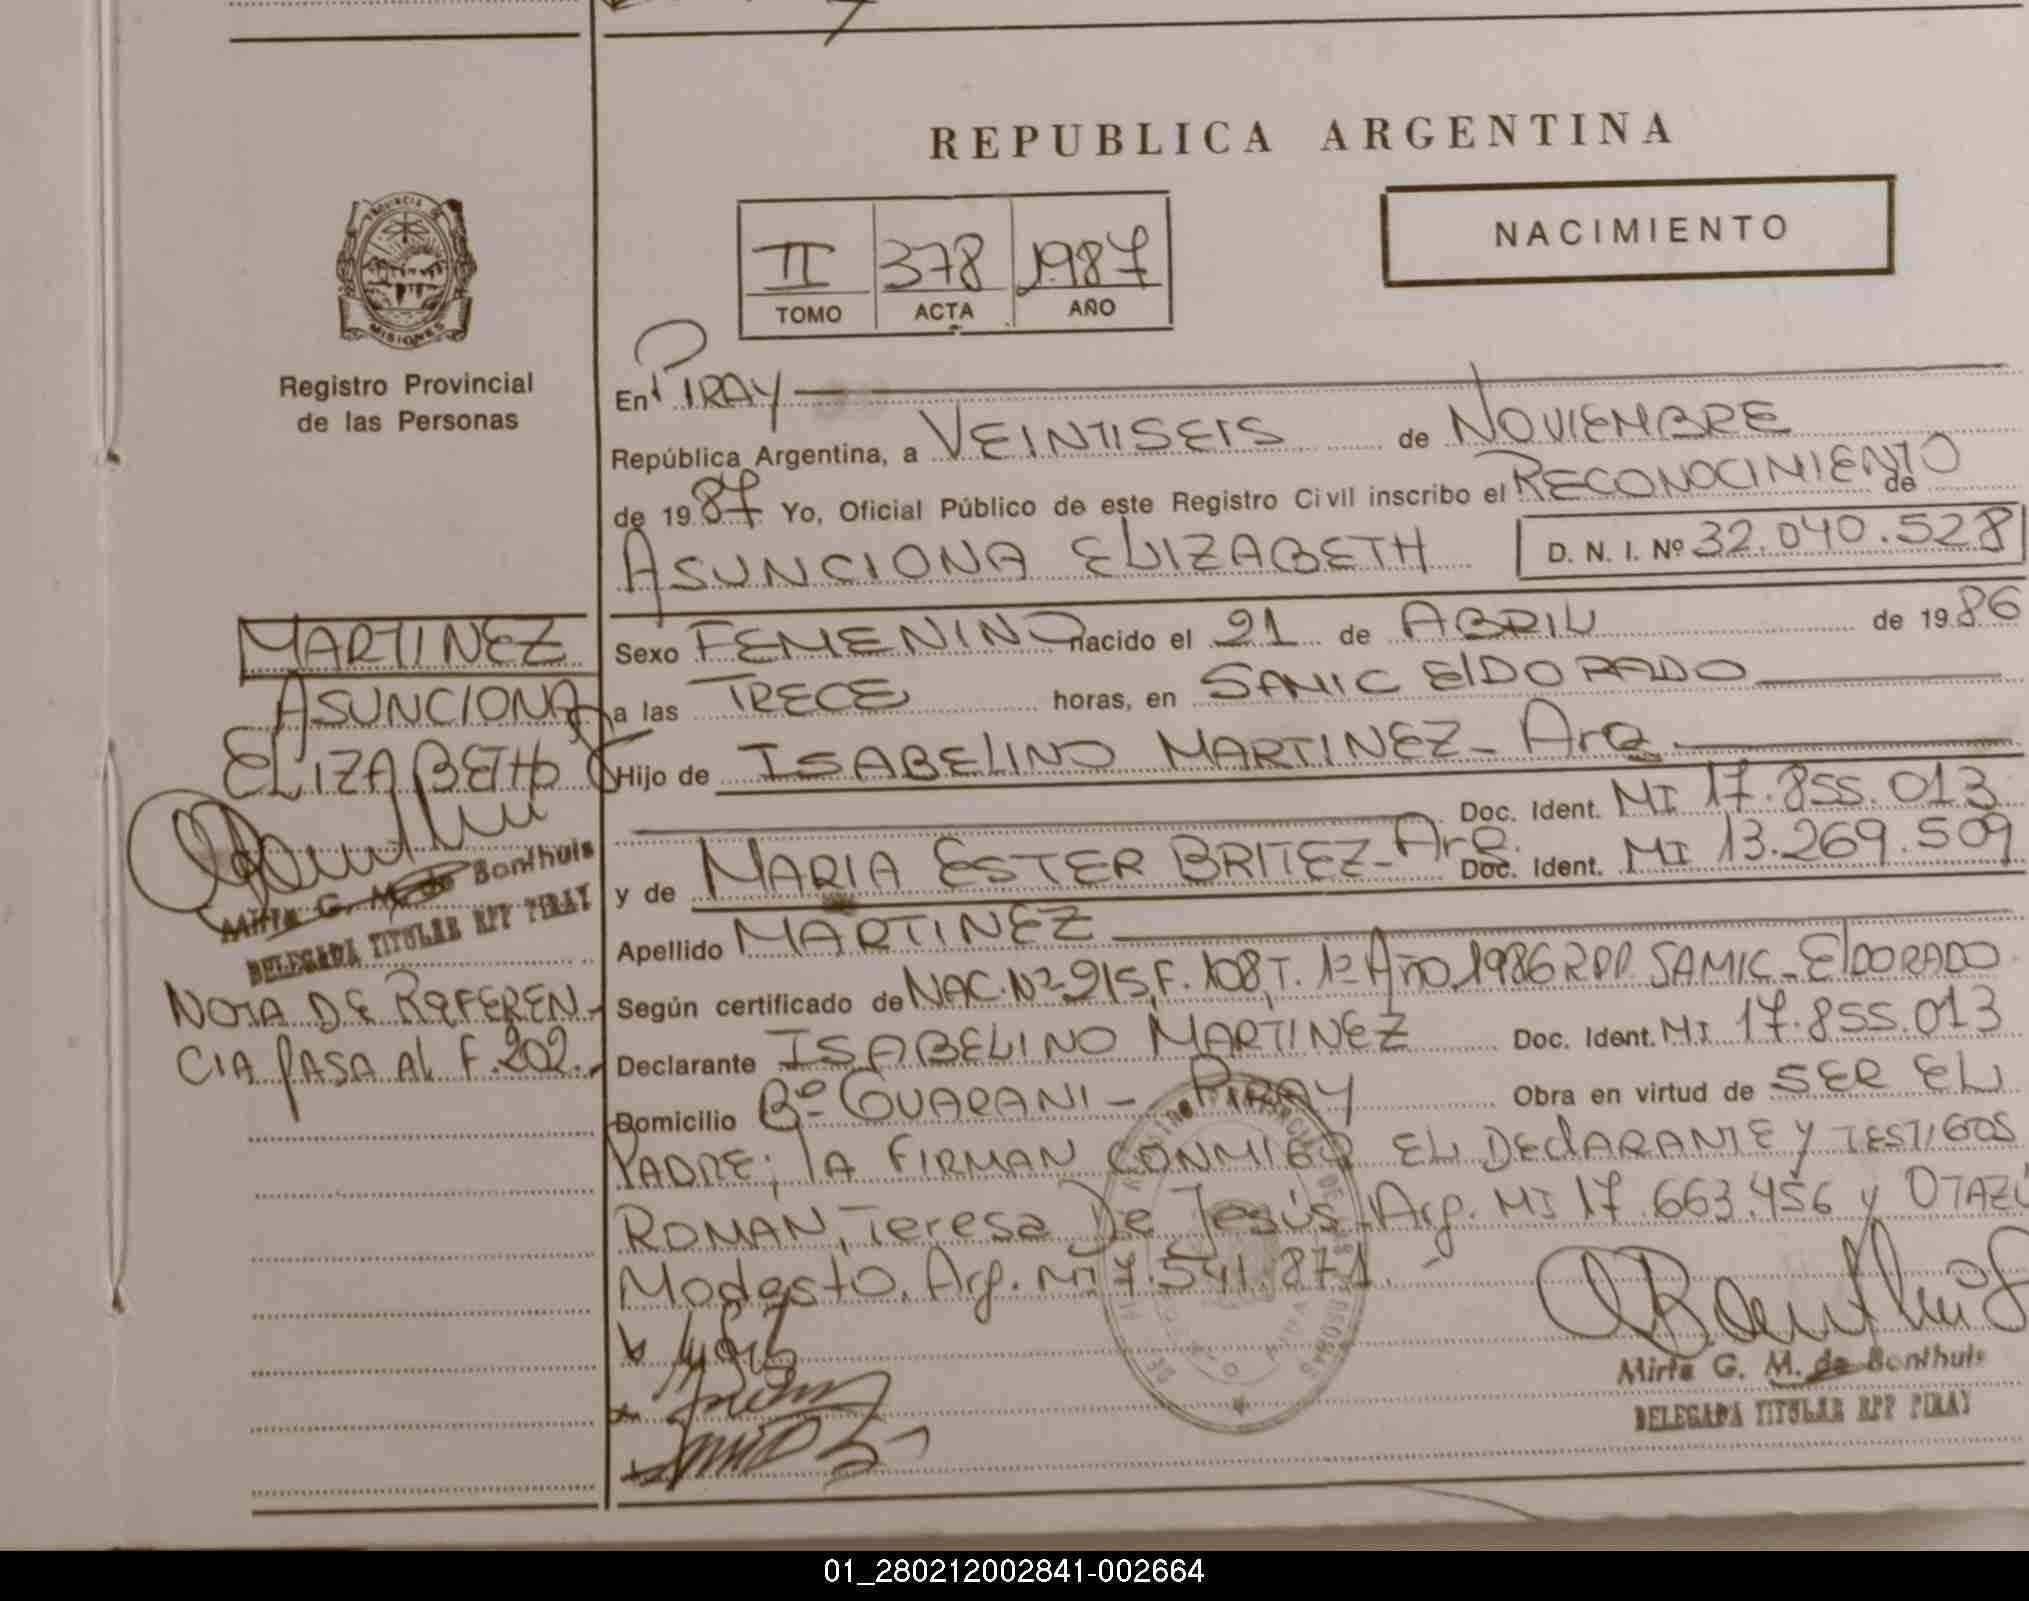 REPUBLICA ARGENTINA
NACIMIENTO
II 378 1987
TOMO ACTA AÑO
PROVINCIA DE
MISIONES
Registro Provincial
de las Personas
En PIRAY
República Argentina, a VEINTISEIS de NOVIEMBRE
de 1987 Yo, Oficial Público de este Registro Civil inscribo el RECONOCIMIENTO de
ASUNCIONA ELIZABETH D. N. I. Nº 32.040.528
Sexo FEMENINO nacido el 21 de ABRIL de 1986
a las TRECE horas, en SAMIC ElDORADO
Hijo de ISABELINO MARTINEZ - Arg
Doc. Ident. MI 17.855.013
y de MARIA ESTER BRITEZ - Arg. Doc. Ident. MI 13.269.509
Apellido MARTINEZ
Según certificado de NAC. Nº 215, F. 108, T. 1º Año 1986 RPP. SAMIC - ElDORADO
Declarante ISABELINO MARTINEZ Doc. Ident. MI 17.855.013
Domicilio Bº GUARANI - PIRAY Obra en virtud de SER EL
PADRE; lA FIRMAN CONMIGO EL DEClARANTE y TESTIGOS
ROMAN, Teresa De Jesús - Arg. MI 17.663.456 y OTAZÚ
Modesto. Arg. MI 7.541.871. -
Mirta G. M. de Bonthuis
DELEGADA TITULAR RPP PIRAY
MARTINEZ
ASUNCIONA
ELIZABETH
Mirta G. M. de Bonthuis
DELEGADA TITULAR RPP PIRAY
NOTA DE REFEREN-
CIA PASA Al F. 202.-
01_280212002841-002664